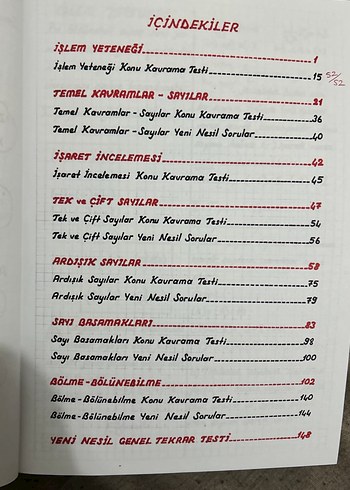 İÇİNDEKİLER
İŞLEM YETENEĞİ 1
İşlem Yeteneği Konu Kavrama Testi 15 52/52
TEMEL KAVRAMLAR - SAYILAR 21
Temel Kavramlar - Sayılar Konu Kavrama Testi 36
Temel Kavramlar - Sayılar Yeni Nesil Sorular 40
İŞARET İNCELEMESİ 42
İşaret İncelemesi Konu Kavrama Testi 45
TEK ve ÇİFT SAYILAR 47
Tek ve Çift Sayılar Konu Kavrama Testi 54
Tek ve Çift Sayılar Yeni Nesil Sorular 56
ARDIŞIK SAYILAR 58
Ardışık Sayılar Konu Kavrama Testi 75
Ardışık Sayılar Yeni Nesil Sorular 79
SAYI BASAMAKLARI 83
Sayı Basamakları Konu Kavrama Testi 98
Sayı Basamakları Yeni Nesil Sorular 100
BÖLME - BÖLÜNEBİLME 102
Bölme - Bölünebilme Konu Kavrama Testi 140
Bölme - Bölünebilme Yeni Nesil Sorular 144
YENİ NESİL GENEL TEKRAR TESTİ 148